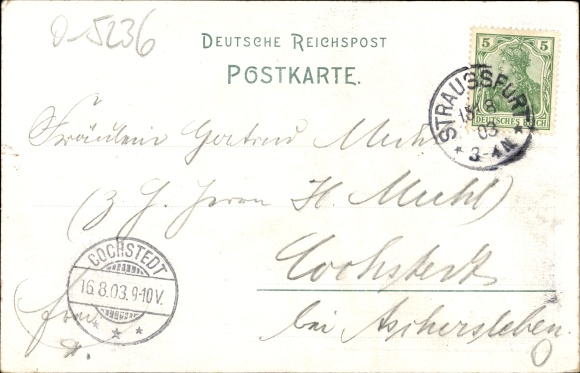 D-5236
DEUTSCHE REICHSPOST
POSTKARTE.
5 5
DEUTSCHES REICH
STRAUSSFURT
15 8
03
* 3-4N *
Fräulein Gertrud Muhl
(z H. Herrn H. Muhl)
Cochstedt
bei Aschersleben
COCHSTEDT
16.8.03.9-10V.
* * *